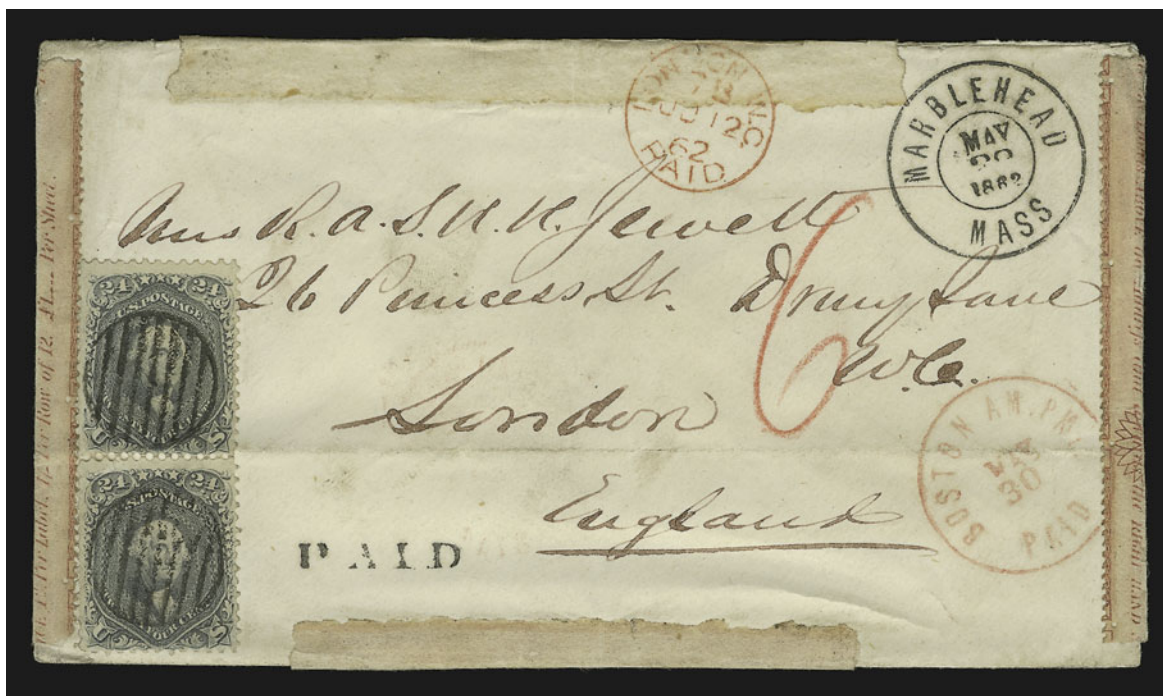 LONDON W.C.
JU 12
62
PAID
MARBLEHEAD
MAY
1862
MASS
R. A. S. K. K. Jewett
26 Princess St. Drury Lane
W.C.
London
England
6
PAID
BOSTON AM. PKT.
30
PAID
24 24
U.S. POSTAGE
U S
24 24
U.S. POSTAGE
FOUR CEN
U S
Per Row of 12. £1.... Per Sheet.